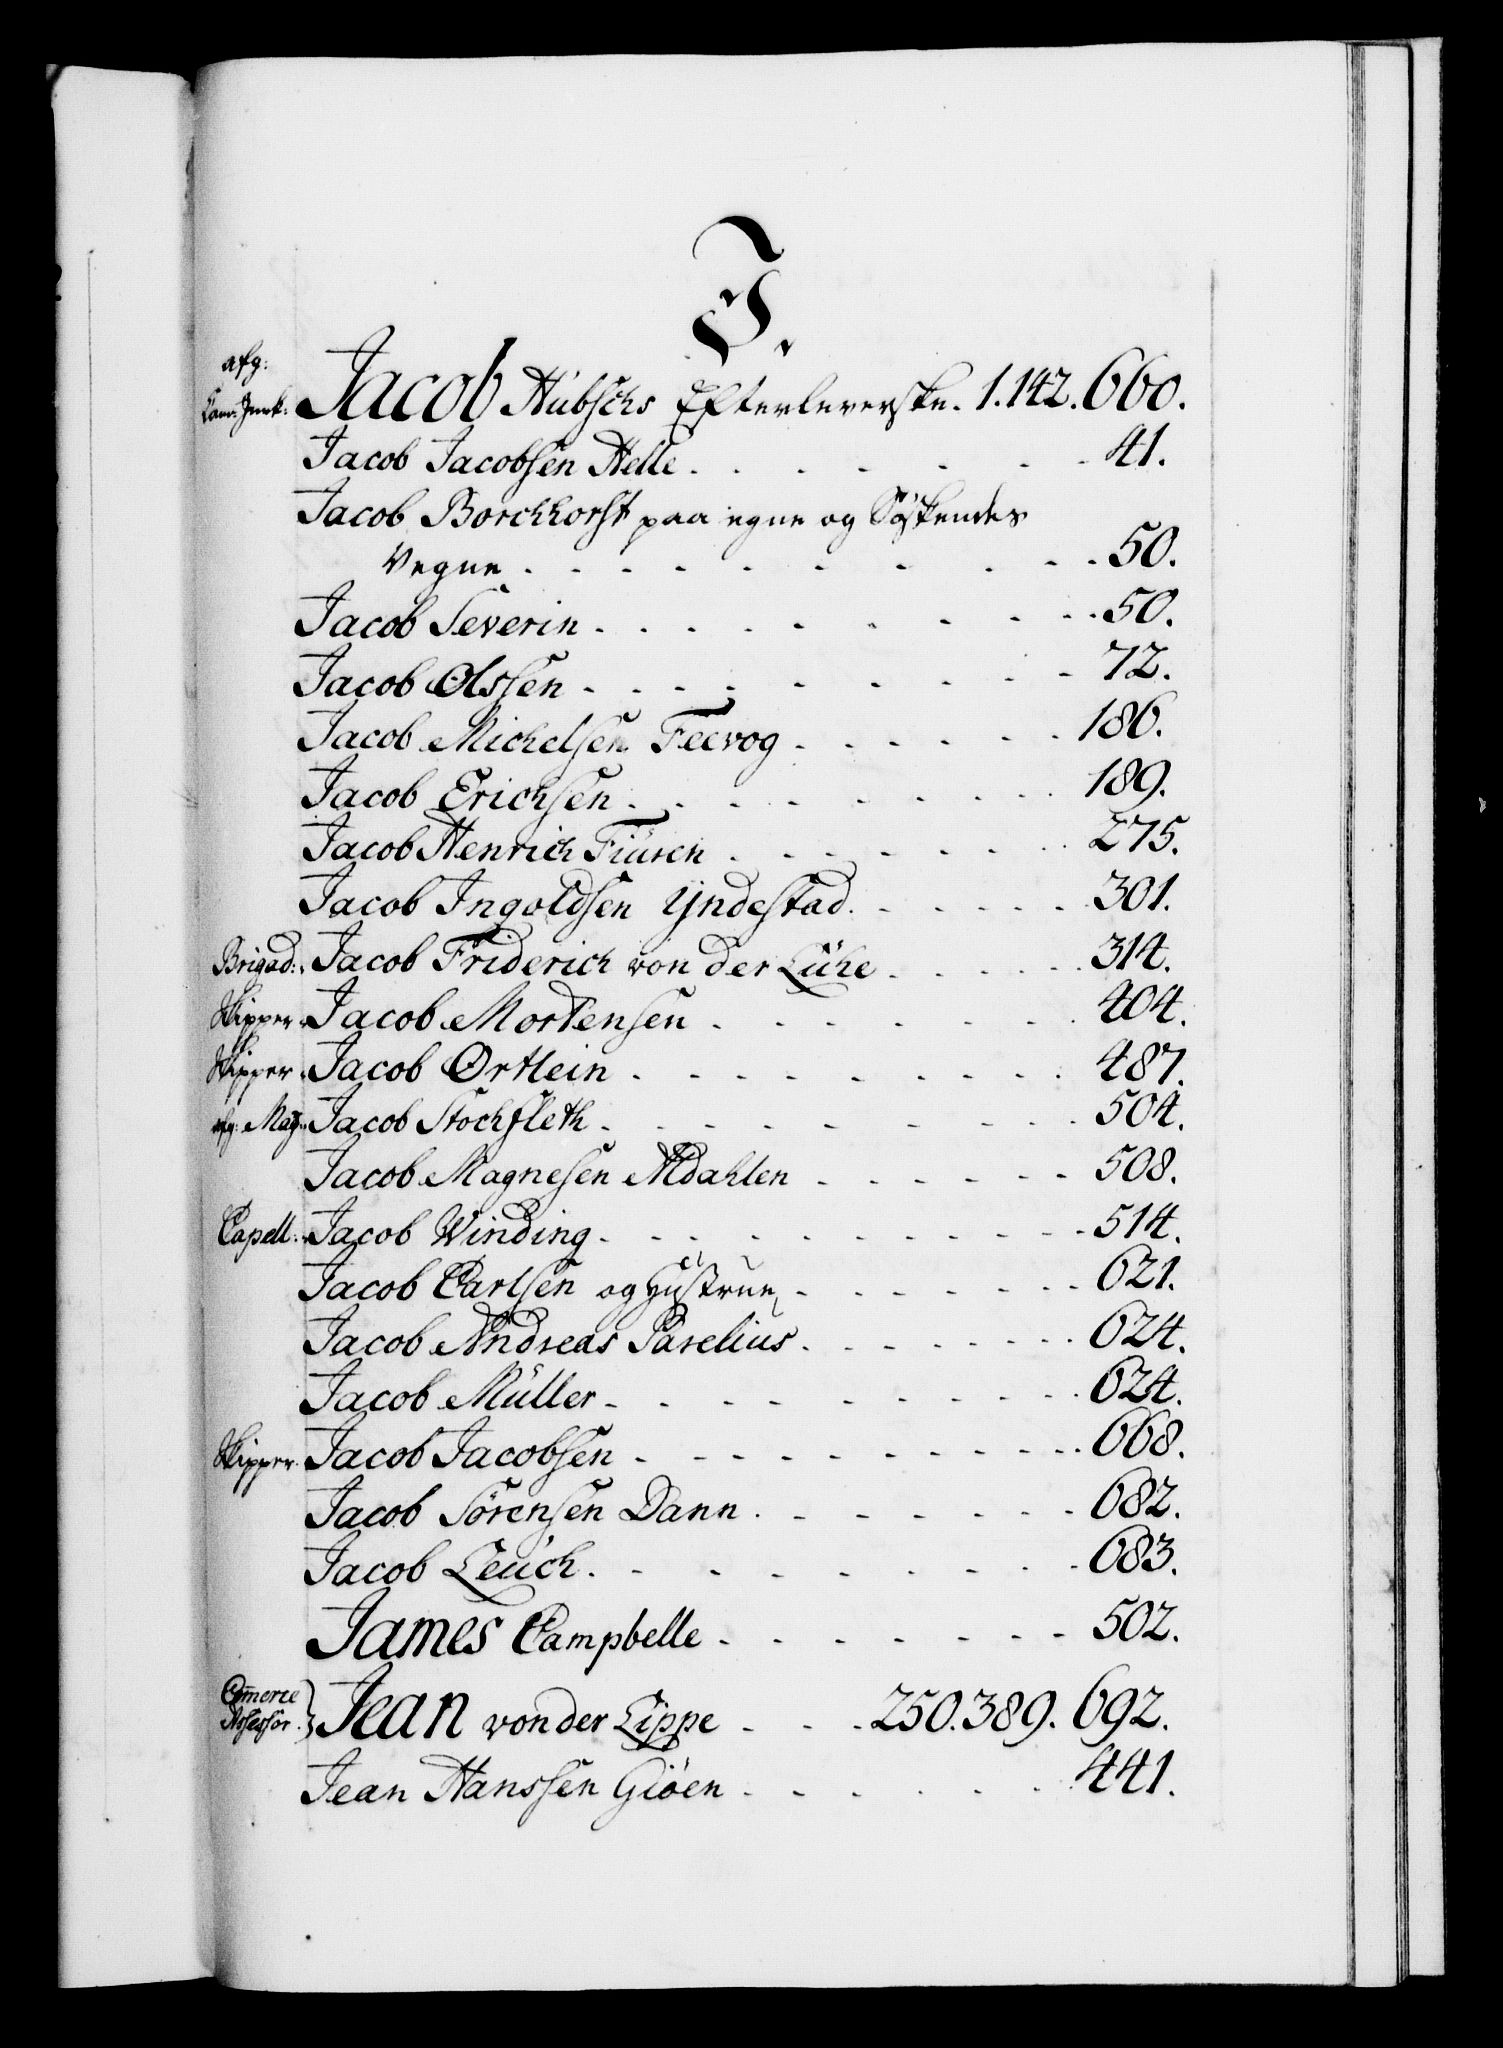 J.
afg:
Cam: Junk: Jacob Hübschs Efterleverske. 1.142.660.
Jacob Jacobsen Helle. 41.
Jacob Borchhorst paa egne og Söskendes
Vegne. 50.
Jacob Severin. 50.
Jacob Olssen. 72.
Jacob Michelsen Feevog. 186.
Jacob Erichsen. 189.
Jacob Henrich Fiüren. 275.
Jacob Ingoldsen Yndestad. 301.
Brigad: Jacob Friderich von der Lühe. 314.
Skipper. Jacob Mortensen. 404.
Skipper. Jacob Ortlein. 487.
afg: Mag: Jacob Stochfleth. 504.
Jacob Magnesen Aldahlen 508.
Capell: Jacob Winding. 514.
Jacob Carlsen og Hustrue. 621.
Jacob Andreas Parelius. 624.
Jacob Müller. 624.
Skipper. Jacob Jacobsen. 668.
Jacob Sörensen Dann. 682.
Jacob Leüch. 683.
James Campbelle. 502.
Com̄erce
Assessor. Jean von der Lippe. 250.389.692.
Jean Hanssen Giöen. 441.